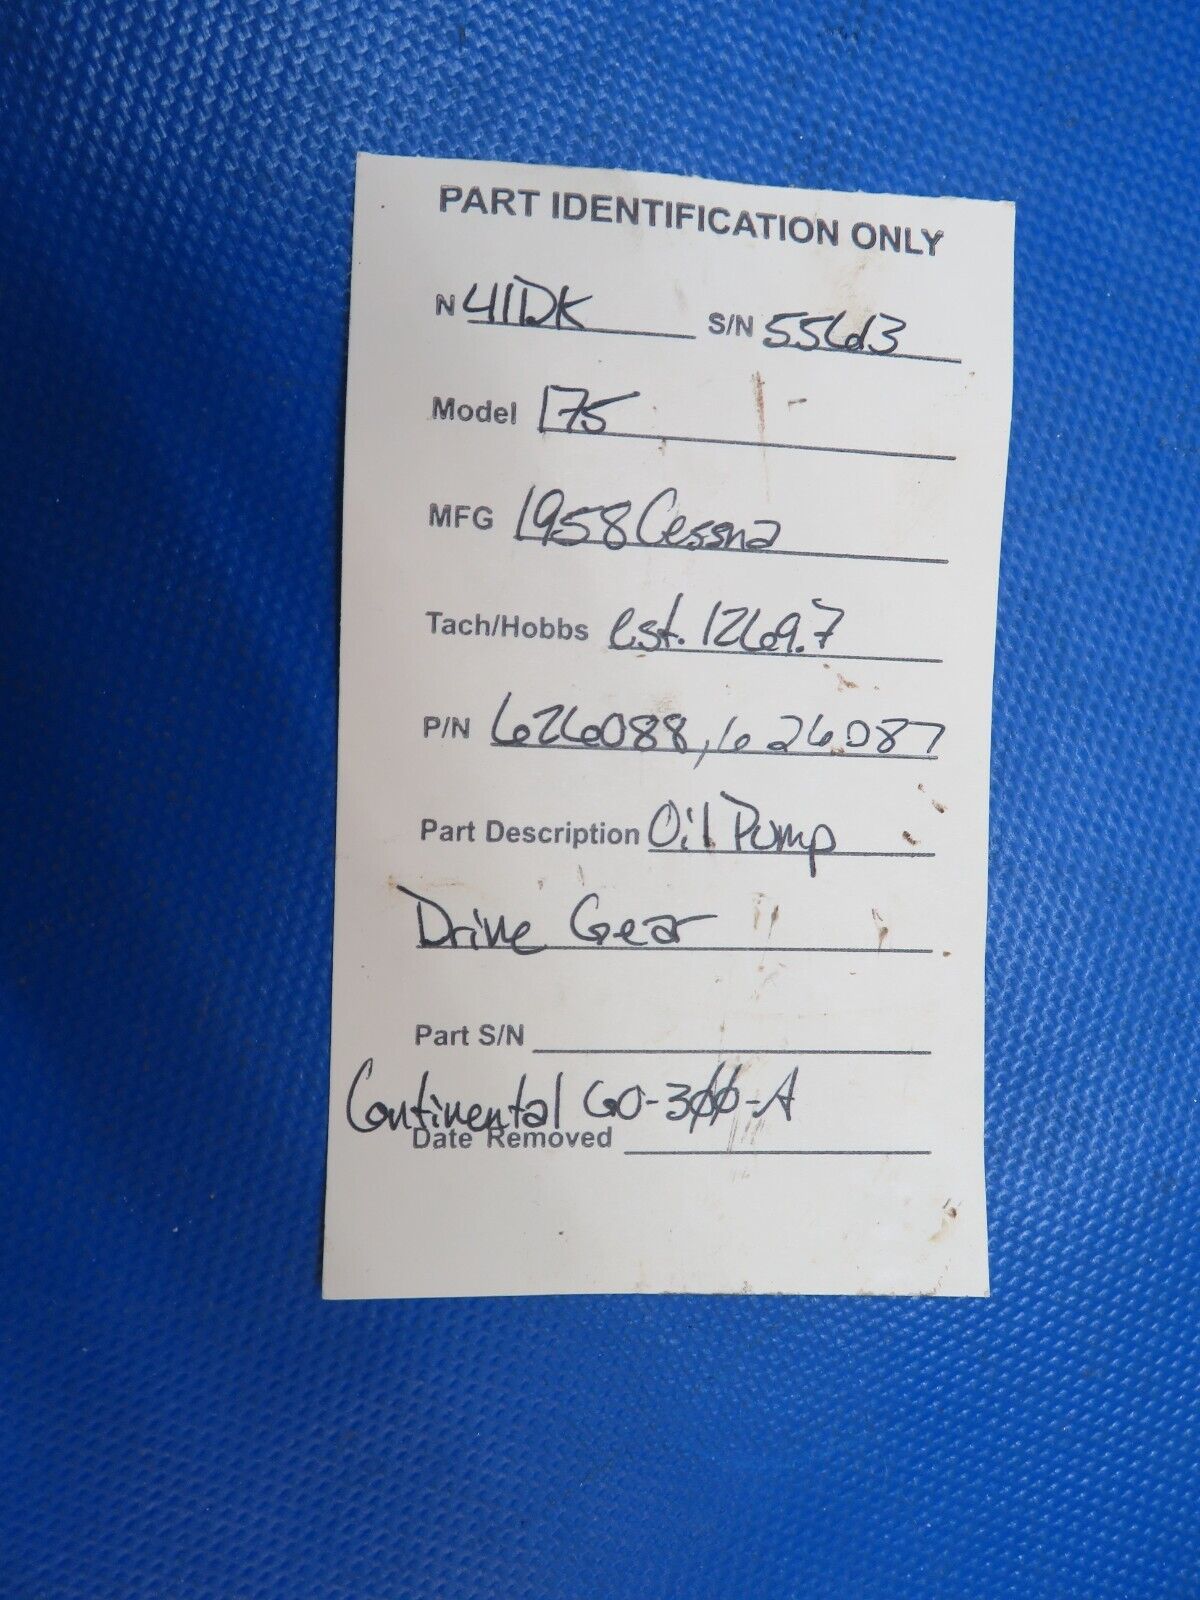 PART IDENTIFICATION ONLY
N 41DK S/N 55663
Model 175
MFG 1958 Cessna
Tach/Hobbs est. 1269.7
P/N 626088, 626087
Part Description Oil Pump
Drive Gear
Part S/N
Continental GO-300-A
Date Removed